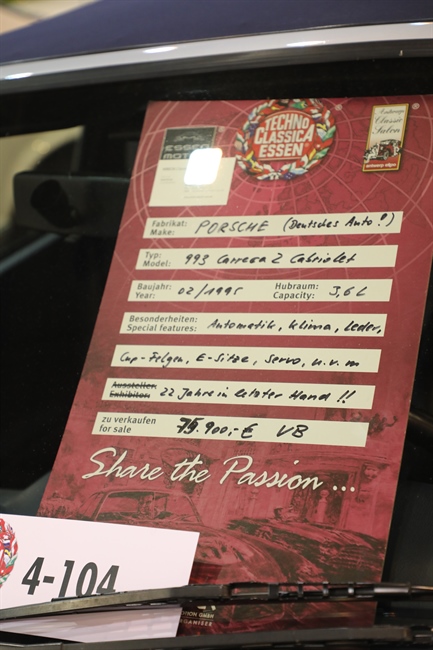 TECHNO
CLASSICA
ESSEN
®
Antwerp
Classic
Salon
®
ESSEN
MOTOR
Fabrikat: PORSCHE (Deutsches Auto!)
Make:
Typ: 993 Carrera 2 Cabriolet
Model:
Baujahr: 02/1995 Hubraum: 3,6 L
Year: Capacity:
Besonderheiten: Automatik, Klima, Leder,
Special features:
Cup-Felgen, E-Sitze, Servo, u.v.m
Aussteller: 22 Jahre in letzter Hand!!
Exhibitor:
zu verkaufen 75.900,-€ VB
for sale
Share the Passion ...
4-104